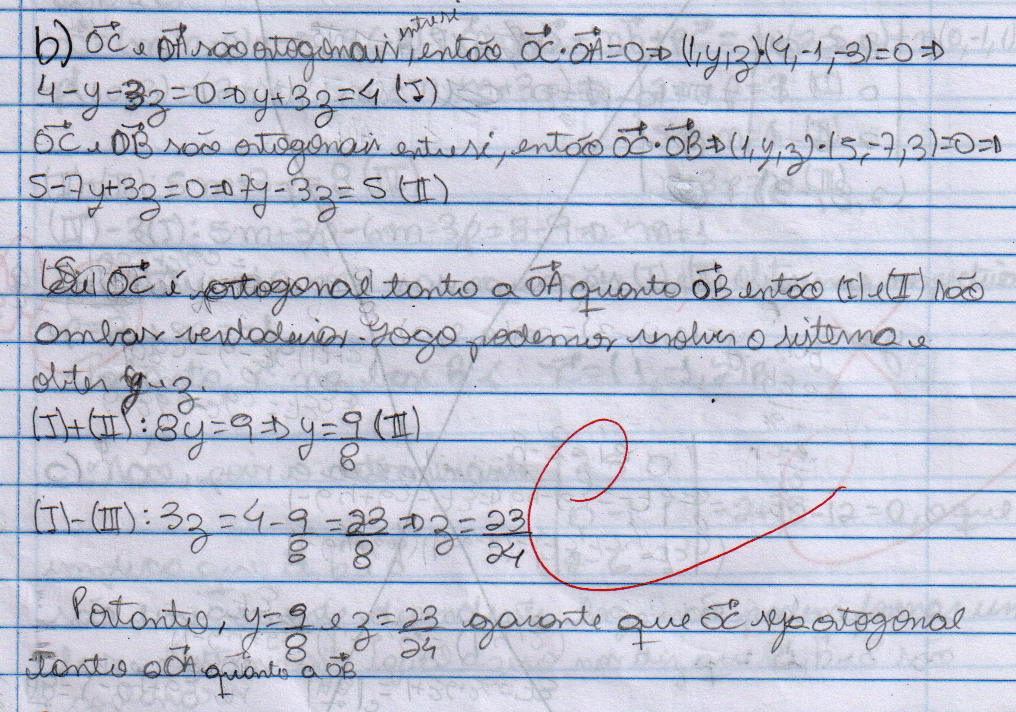 b) OC e OA são ortogonais entre si, então OC·OA=0⇒(1,y,z)·(4,-1,-3)=0⇒
4-y-3z=0⇒y+3z=4 (I)
OC e OB são ortogonais entre si, então OC·OB⇒(1,y,z)·(5,-7,3)=0⇒
5-7y+3z=0⇒7y-3z=5 (II)
Se OC é ortogonal tanto a OA quanto OB então (I) e (II) são
ambas verdadeiras. Logo podemos resolver o sistema e
obter y e z.
(I)+(II): 8y=9⇒y=9/8 (III)
(I)-(III): 3z=4-9/8=23/8⇒z=23/24
Portanto, y=9/8 e z=23/24 garante que OC seja ortogonal
tanto a OA quanto a OB